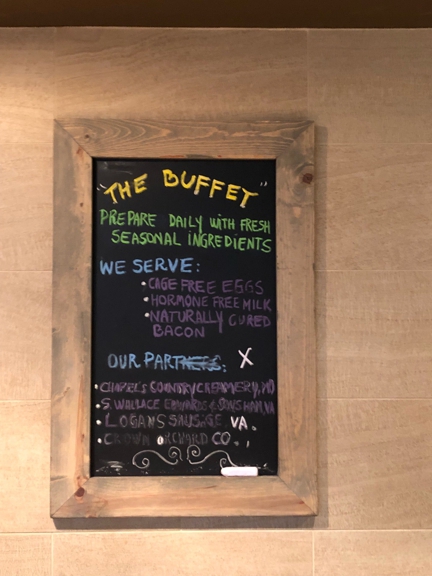 "THE BUFFET"
PREPARE DAILY WITH FRESH
SEASONAL INGREDIENTS
WE SERVE:
• CAGE FREE EGGS
• HORMONE FREE MILK
• NATURALLY CURED
BACON
OUR PARTNERS: X
• CHAPEL'S COUNTRY CREAMERY, MD
• S. WALLACE EDWARDS & SONS HAM, VA
• LOGANS SAUSAGE VA.
• CROWN ORCHARD CO.,